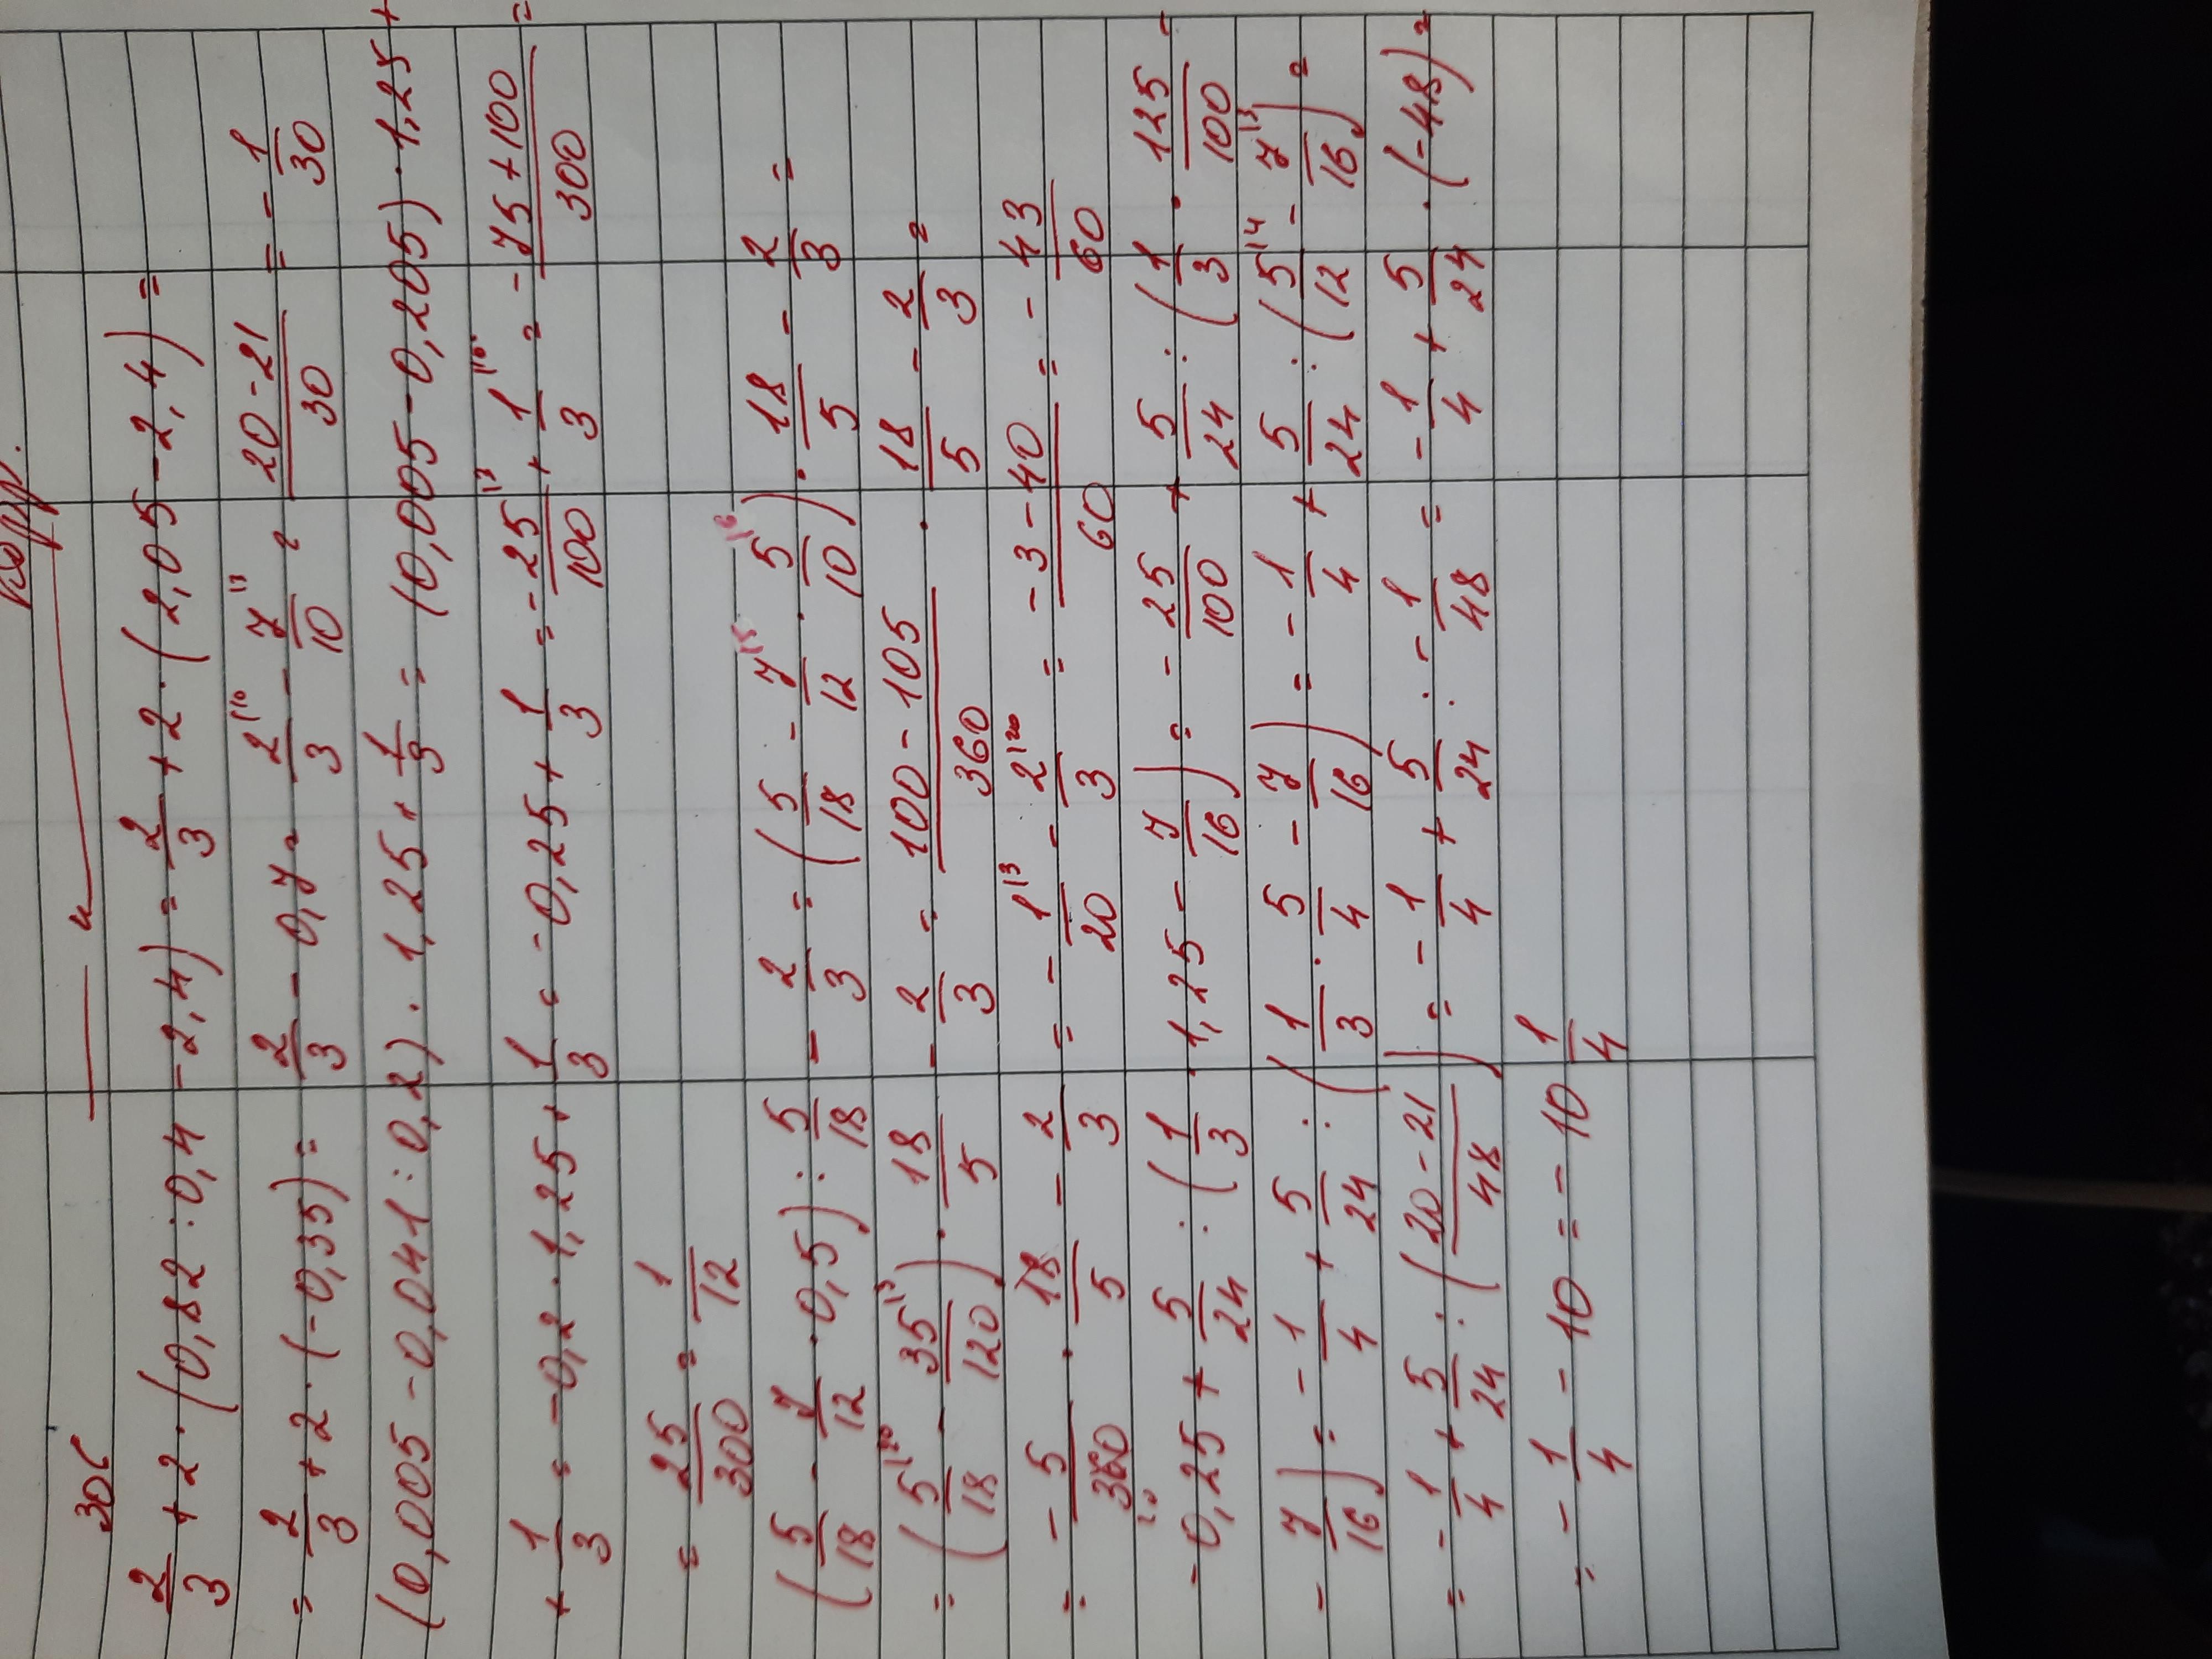 306
2/3 + 2 · (0,82 : 0,4 - 2,4) = 2/3 + 2 · (2,05 - 2,4) =
= 2/3 + 2 · (-0,35) = 2/3 - 0,7 = 2/3 - 7/10 = (20-21)/30 = - 1/30
(0,005 - 0,041 : 0,2) · 1,25 + 1/3 = (0,005 - 0,205) · 1,25 +
+ 1/3 = -0,2 · 1,25 + 1/3 = -0,25 + 1/3 = -25/100 + 1/3 = (-75+100)/300 =
= 25/300 = 1/12
(5/18 - 7/12 · 0,5) : 5/18 - 2/3 = (5/18 - 7/12 · 5/10) · 18/5 - 2/3 =
= (5/18 - 35/120) · 18/5 - 2/3 = (100-105)/360 · 18/5 - 2/3 =
= - 5/360 · 18/5 - 2/3 = - 1/20 - 2/3 = (-3-40)/60 = - 43/60
-0,25 + 5/24 : (1/3 · 1,25 - 7/16) = - 25/100 + 5/24 : (1/3 · 125/100 -
- 7/16) = - 1/4 + 5/24 : (1/3 · 5/4 - 7/16) = - 1/4 + 5/24 : (5/12 - 7/16) =
= - 1/4 + 5/24 : ((20-21)/48) = - 1/4 + 5/24 : - 1/48 = - 1/4 + 5/24 · (-48) =
= - 1/4 - 10 = - 10 1/4